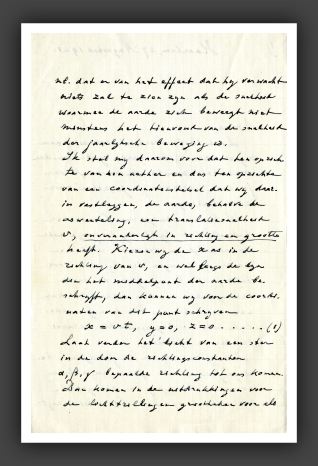 nl. dat er van het effect dat hij verwacht
niets zal te zien zijn als de snelheid
waarmee de aarde zich beweegt niet
minstens het tienvoud van de snelheid
der jaarlijksche beweging is.
Ik stel mij daarom voor dat ten opzich
te van den aether en dus ten opzichte
van een coordinatenstelsel dat wij daar
in vastleggen, de aarde, behalve de
aswenteling, een translatiesnelheid
v, onveranderlijk in richting en grootte
heeft. Kiezen wij de x as in de
richting van v, en wel langs de lijn
die het middelpunt der aarde be
schrijft, dan kunnen wij voor de coordi-
naten van dit punt schrijven
x = vt, y=0, z=0 . . . . . (1)
Laat verder het licht van een ster
in de door de richtingsconstanten
α, β, γ bepaalde richting tot ons komen.
Dan komen in de uitdrukkingen voor
de lichttrillingen grootheden voor als